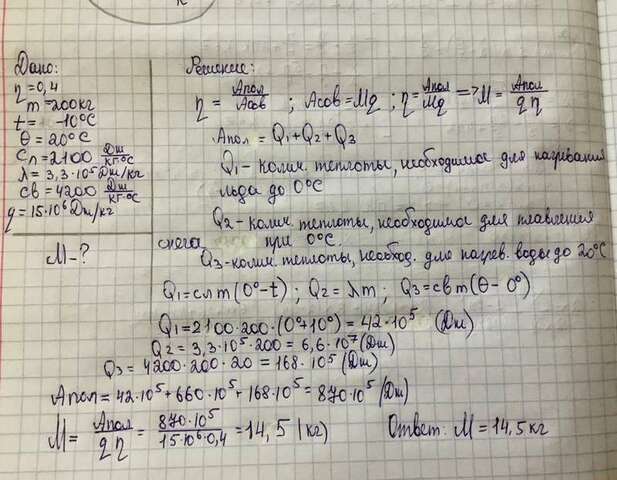 Дано:
η = 0,4
m = 200кг
t = -10°C
θ = 20°C
Cл = 2100 Дж/кг·°C
λ = 3,3·10⁵ Дж/кг
св = 4200 Дж/кг·°C
q = 15·10⁶ Дж/кг
M - ?
Решение:
η = Апол/Асов ; Асов = Mq ; η = Апол/Mq => M = Апол/qη
Апол = Q₁ + Q₂ + Q₃
Q₁ - колич. теплоты, необходимое для нагревания
льда до 0°C
Q₂ - колич. теплоты, необходимое для плавления
снега при 0°C.
Q₃ - колич. теплоты, необход. для нагрев. воды до 20°C
Q₁ = cлm(0° - t) ; Q₂ = λm ; Q₃ = cвm(θ - 0°)
Q₁ = 2100·200·(0°+10°) = 42·10⁵ (Дж)
Q₂ = 3,3·10⁵·200 = 6,6·10⁷ (Дж)
Q₃ = 4200·200·20 = 168·10⁵ (Дж)
Апол = 42·10⁵ + 660·10⁵ + 168·10⁵ = 870·10⁵ (Дж)
M = Апол/qη = 870·10⁵/15·10⁶·0,4 = 14,5 (кг)
Ответ: M = 14,5кг